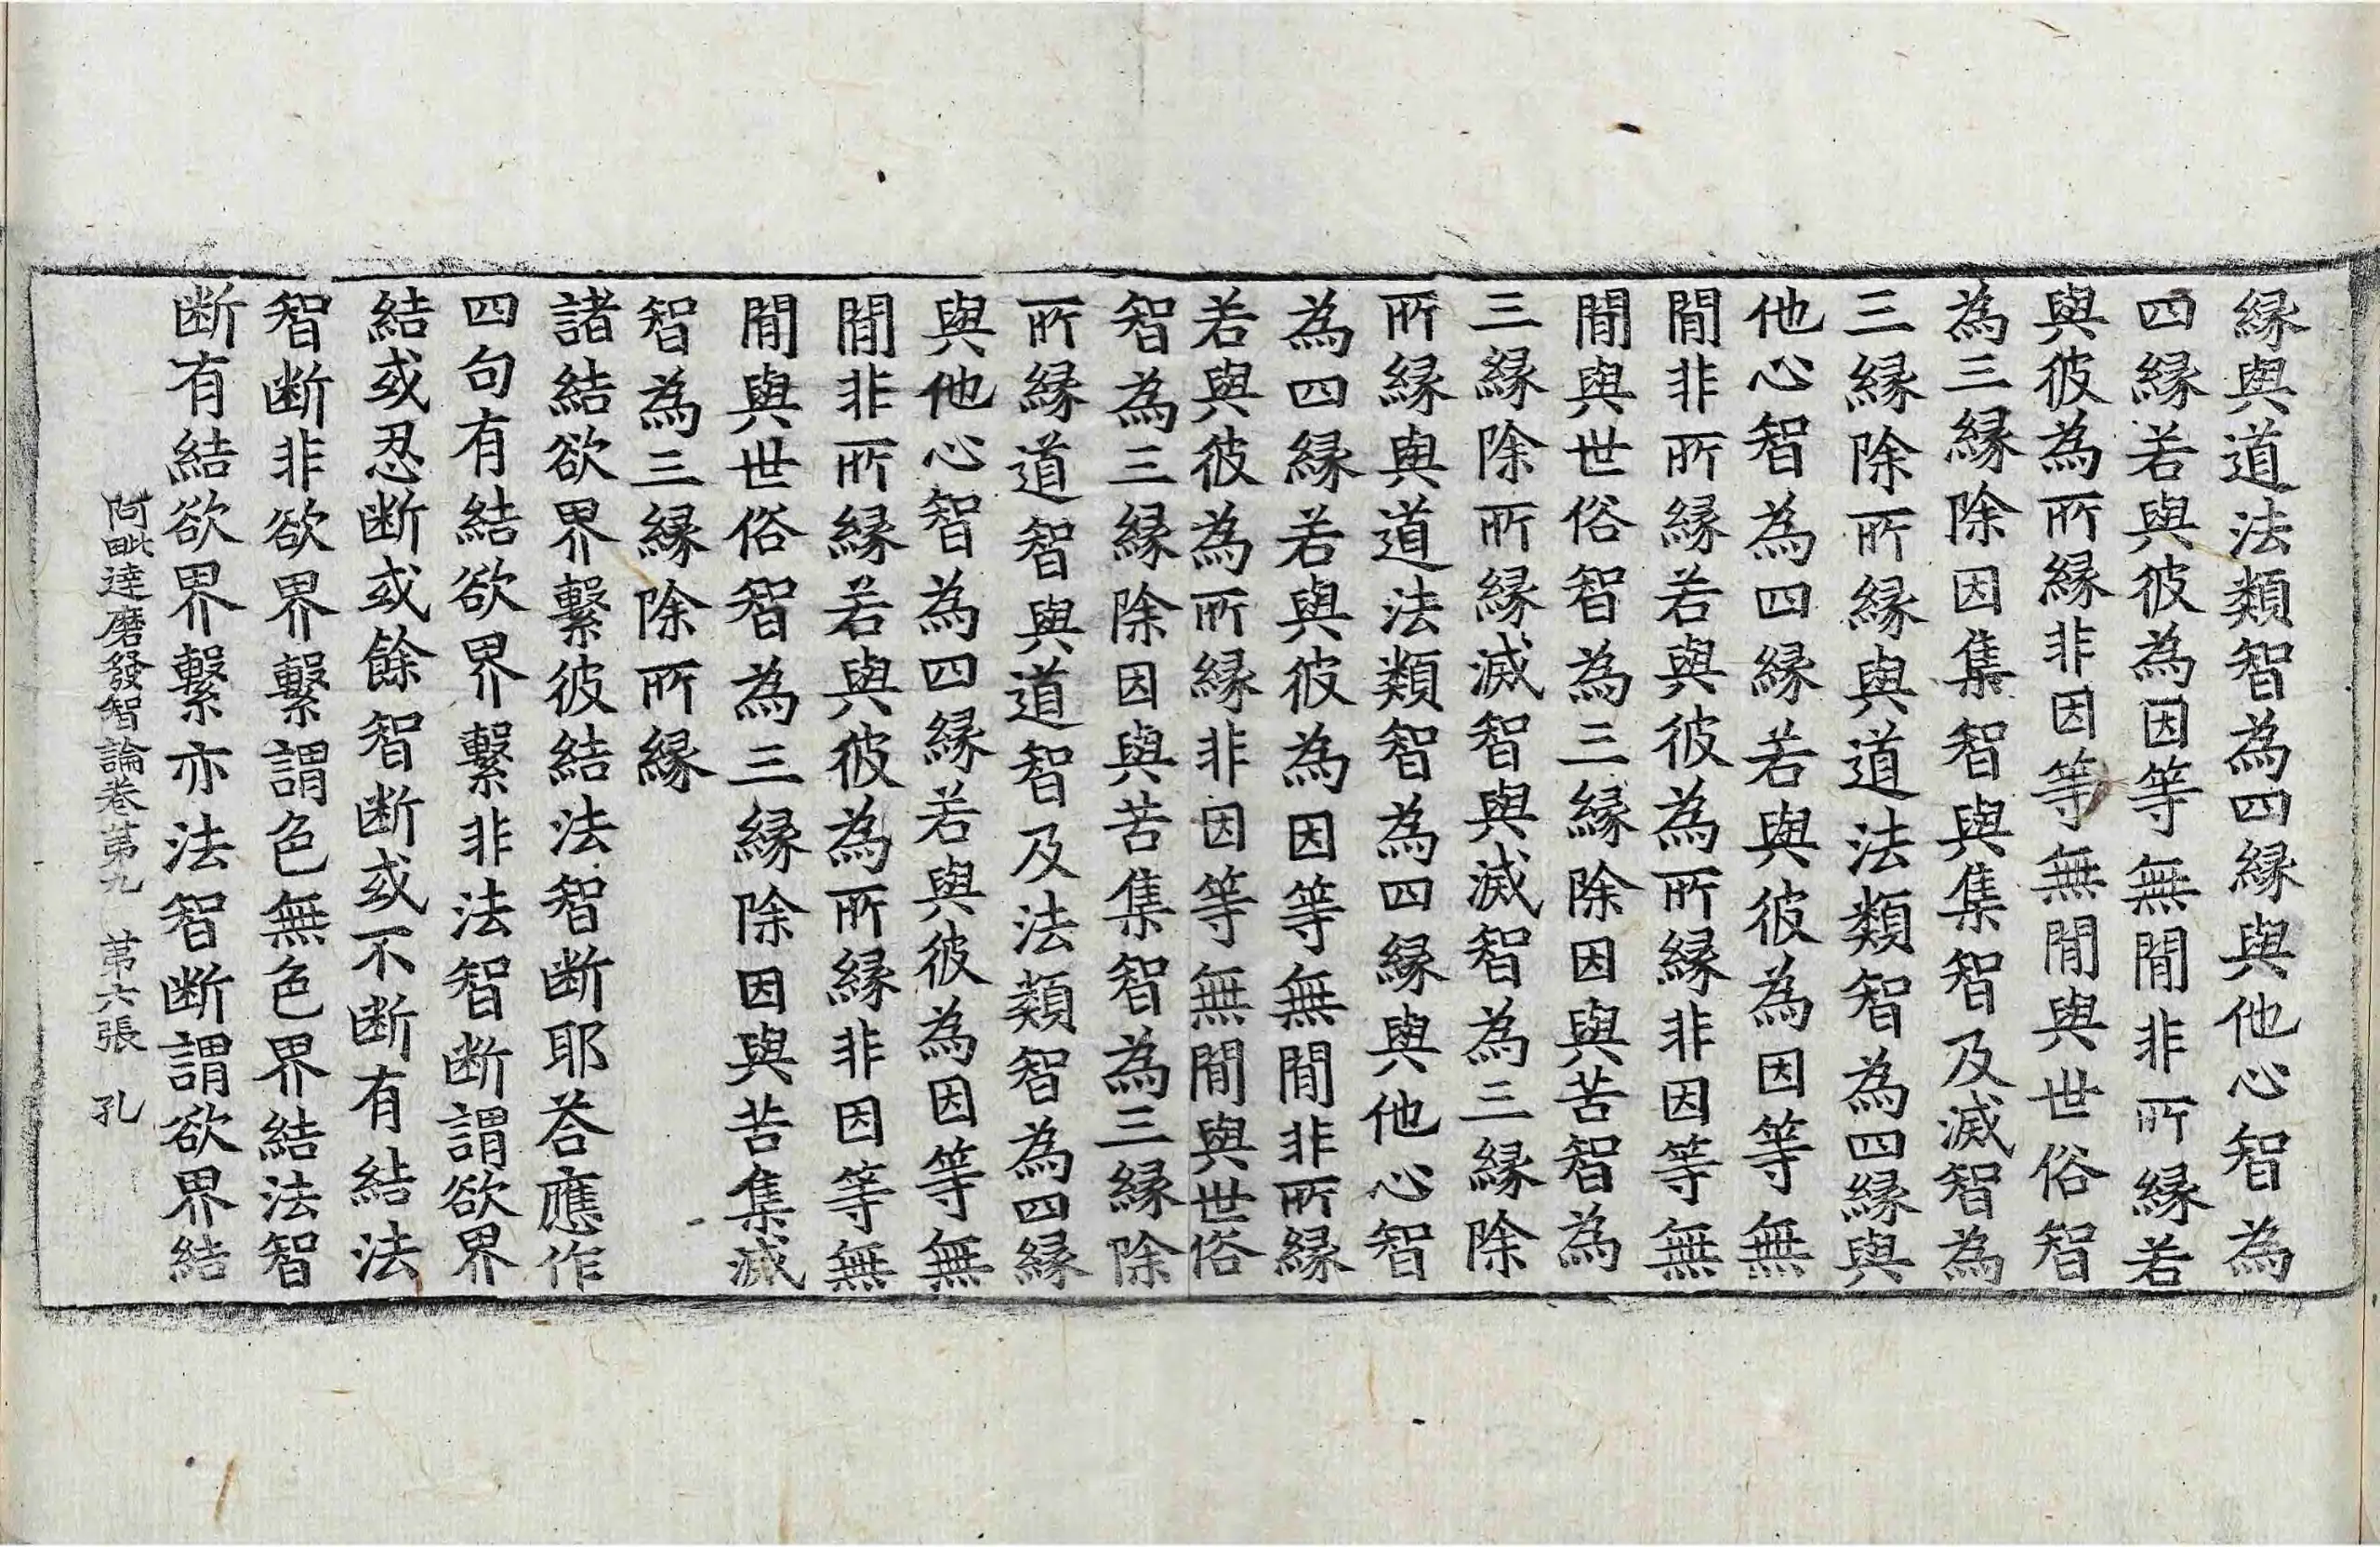 縁與道法類智為四縁與他心智為
四縁若與彼為因等無間非所縁若
與彼為所縁非因等無間與世俗智
為三縁除因集智與集智及滅智為
三縁除所縁與道法類智為四縁與
他心智為四縁若與彼為因等無
間非所縁若與彼為所縁非因等無
間與世俗智為三縁除因與苦智為
三縁除所縁滅智與滅智為三縁除
所縁與道法類智為四縁與他心智
為四縁若與彼為因等無間非所縁
若與彼為所縁非因等無間與世俗
智為三縁除因與苦集智為三縁除
所縁道智與道智及法類智為四縁
與他心智為四縁若與彼為因等無
間非所縁若與彼為所縁非因等無
間與世俗智為三縁除因與苦集滅
智為三縁除所縁
諸結欲界繫彼結法智断耶荅應作
四句有結欲界繫非法智断謂欲界
結或忍断或餘智断或不断有結法
智断非欲界繫謂色無色界結法智
断有結欲界繫亦法智断謂欲界結
阿毗達磨發智論卷第九 第六張 孔